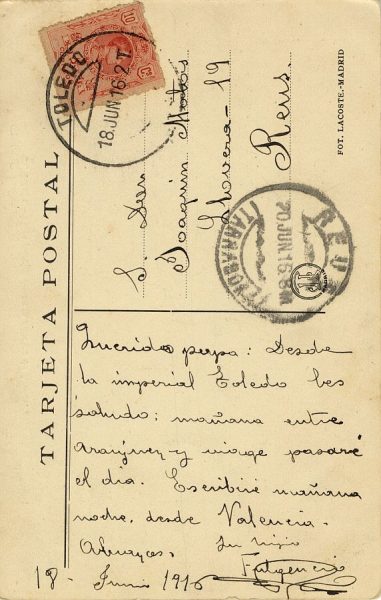 TARJETA POSTAL
FOT. LACOSTE.-MADRID
10 10
TOLEDO
18.JUN 16.2T
S. Dn
Joaquin Matas
Llovera - 19
Reus.
REUS
20.JUN.16.8M
(TARRAGONA)
Querido papa: Desde
la imperial Toledo les
saludo; mañana entre
Aranjuez y viage pasaré
el dia. Escribiré mañana
noche, desde Valencia.
Abrazos, Su hijo
Fulgencio
18 - Junio 1916